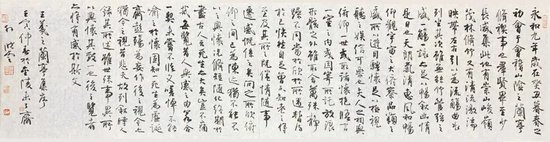 永和九年歲在癸丑暮春之
初會于會稽山陰之蘭亭
脩禊事也群賢畢至少
長咸集此地有崇山峻領
茂林脩竹又有清流激湍
映帶左右引以為流觴曲水
列坐其次雖無絲竹管弦之
盛一觴一詠亦足以暢敘幽情
是日也天朗氣清惠風和暢
仰觀宇宙之大俯察品類之盛
所以遊目騁懷足以極視聽之
娛信可樂也夫人之相與
俯仰一世或取諸懷抱悟言
一室之內或因寄所託放浪
形骸之外雖趣舍萬殊靜
躁不同當其欣於所遇暫得
於己快然自足不知老之將
至及其所之既惓情隨事
遷感慨係之矣向之所欣
俛仰之間已為陳迹猶不能不
以之興懷況脩短隨化終期於
盡古人云死生亦大矣豈不痛
哉每覽昔人興感之由若合
一契未嘗不臨文嗟悼不能
喻之於懷固知一死生為虛誕
齊彭殤為妄作後之視今亦
猶今之視昔悲夫故列敘時人
錄其所述雖世殊事異所
以興懷其致一也後之覽者
亦將有感於斯文
王羲之蘭亭集序